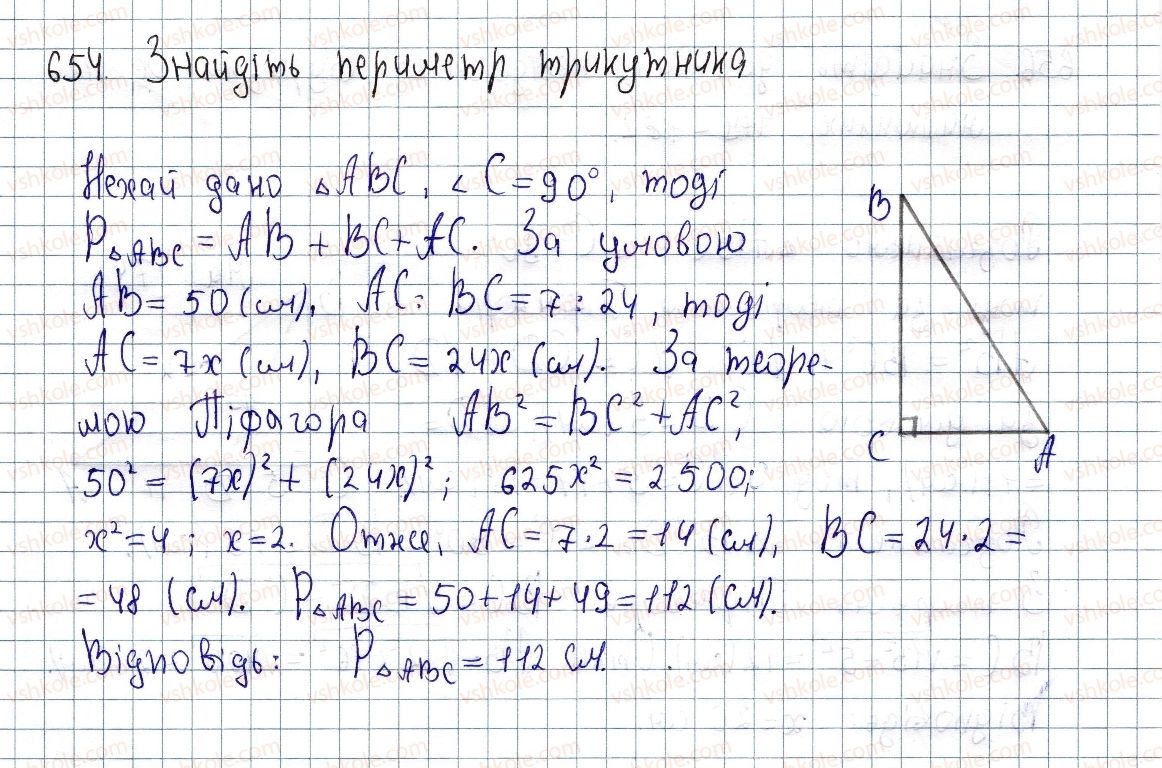 654. Знайдіть периметр трикутника
Нехай дано △ABC, ∠C = 90°, тоді
P△ABC = AB + BC + AC. За умовою
AB = 50 (см), AC : BC = 7 : 24, тоді
AC = 7x (см), BC = 24x (см). За теоре-
мою Піфагора AB² = BC² + AC²,
50² = (7x)² + (24x)²; 625x² = 2500;
x² = 4; x = 2. Отже, AC = 7·2 = 14 (см), BC = 24·2 =
= 48 (см). P△ABC = 50 + 14 + 49 = 112 (см).
Відповідь: P△ABC = 112 см.
B
C
A
vshkole.com